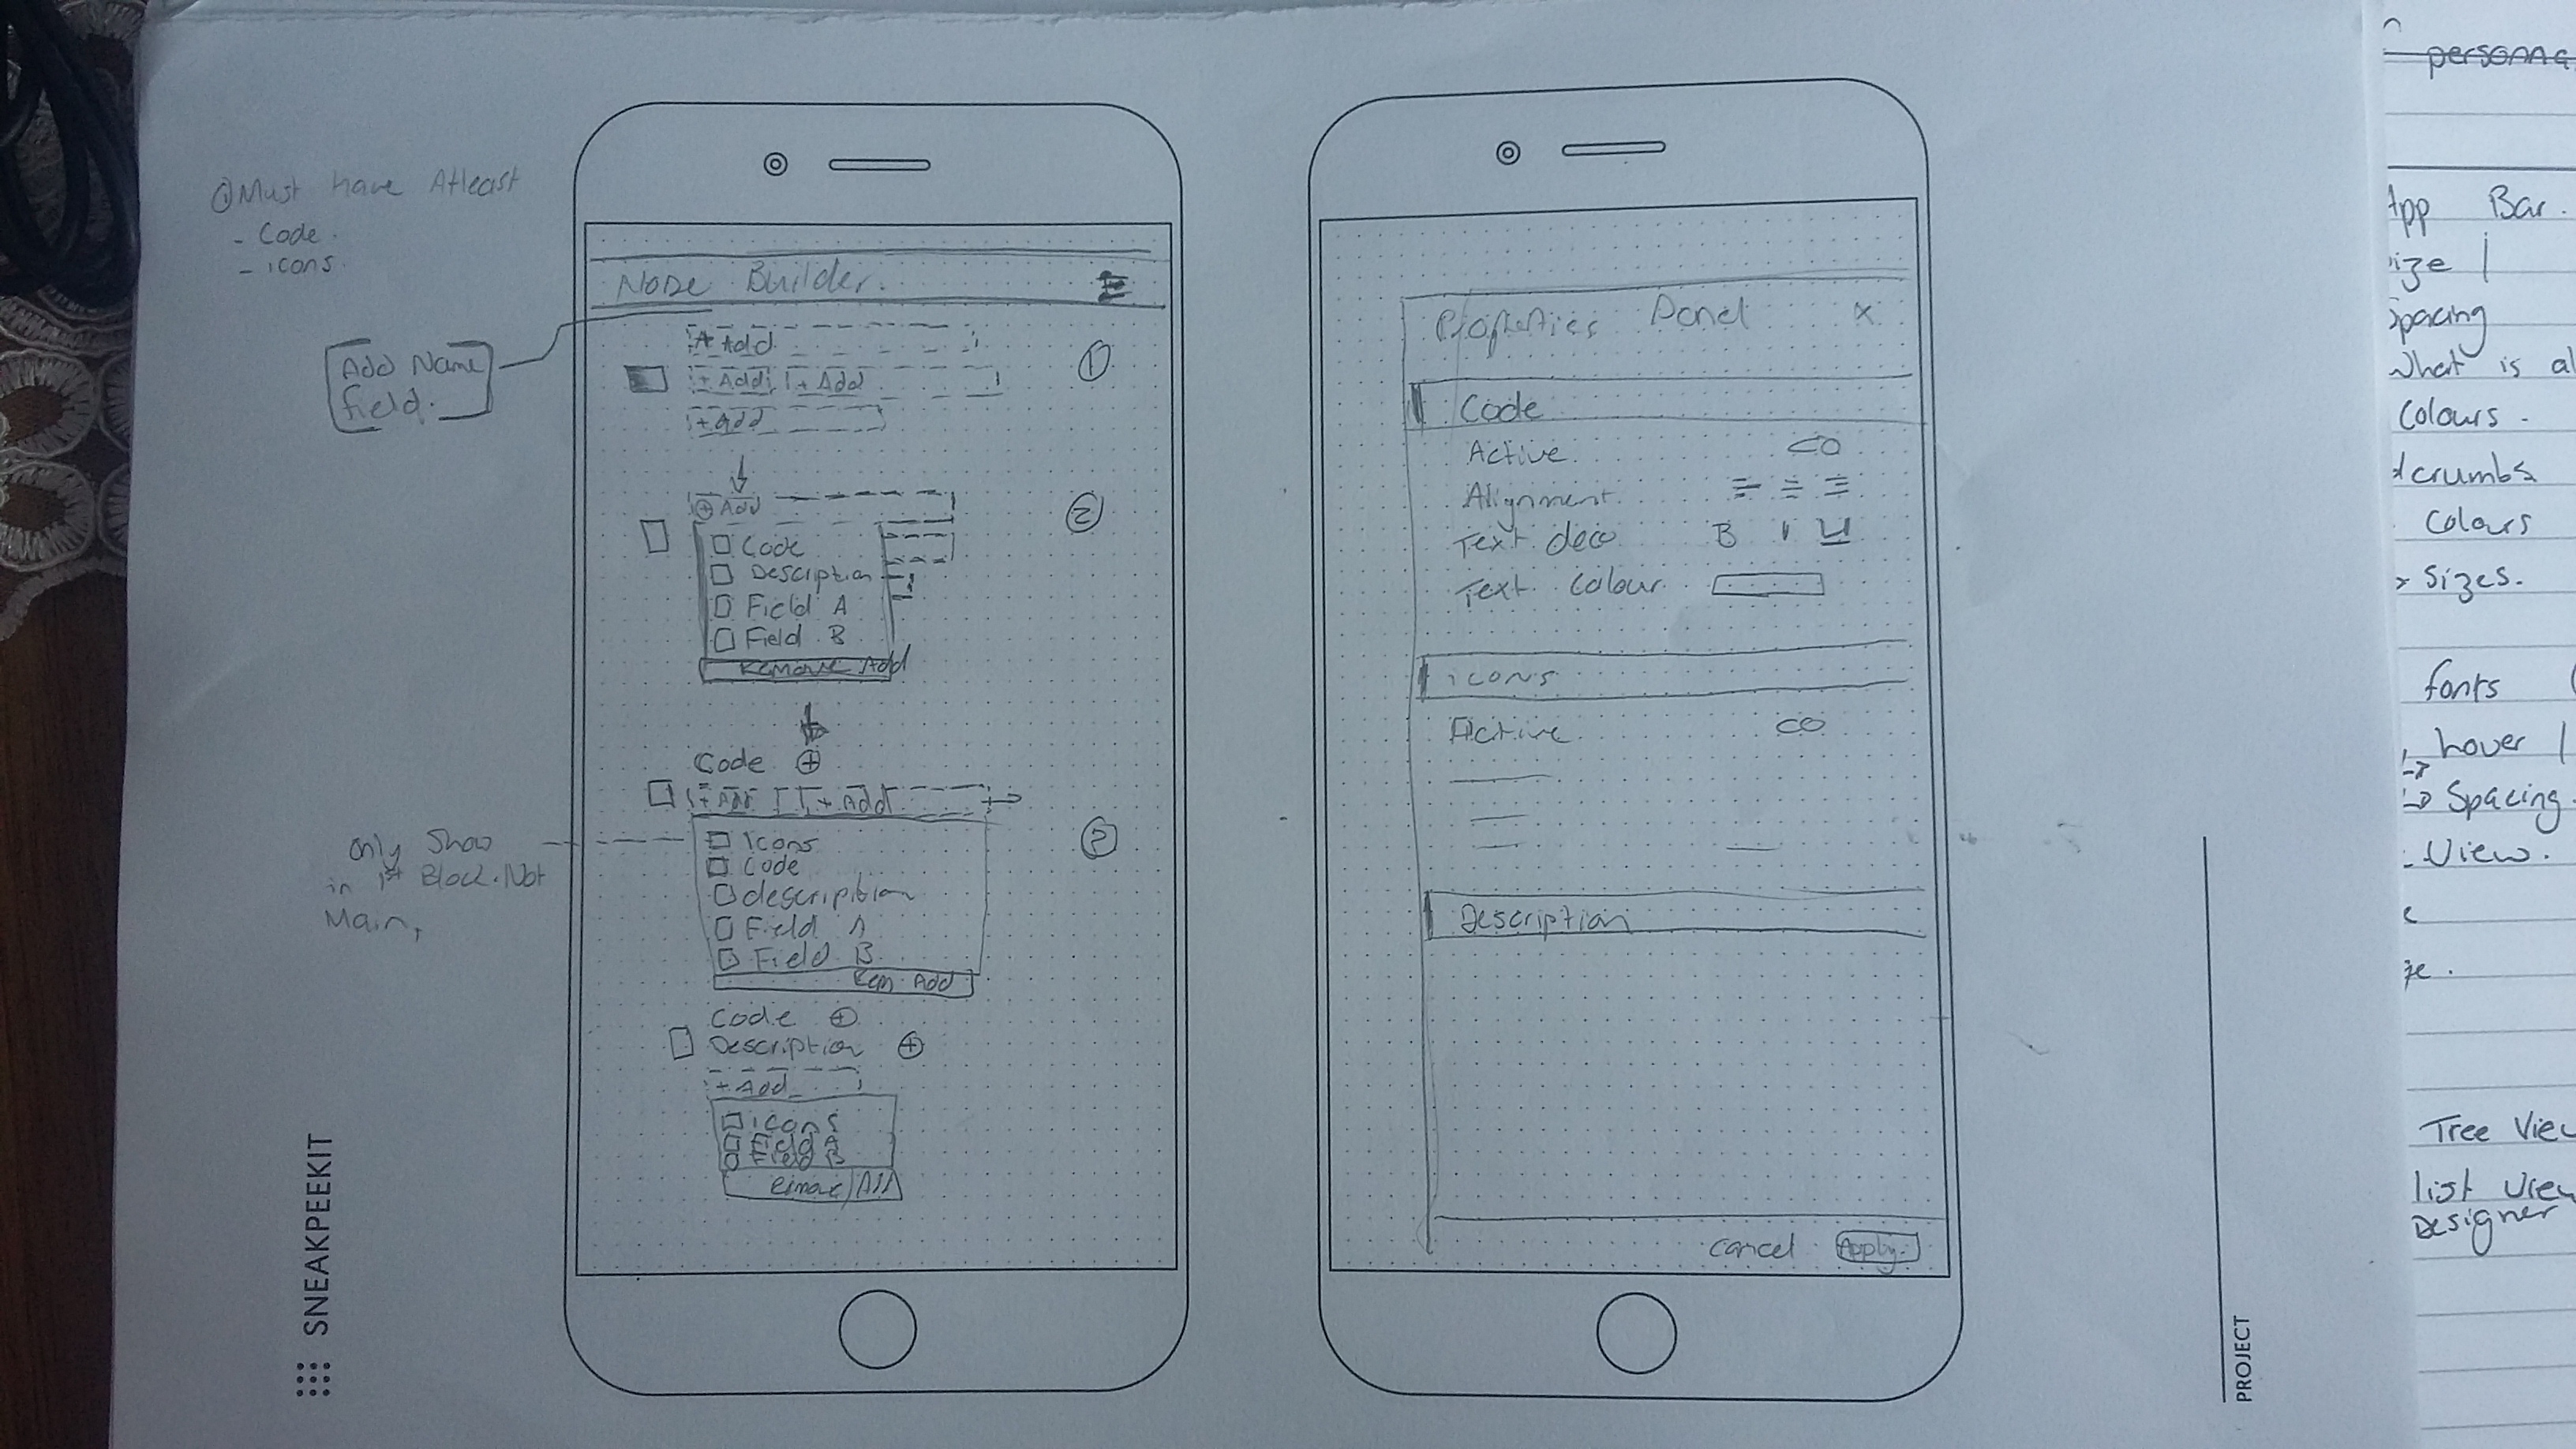 ① Must have Atleast
- Code.
- icons.
Add Name
field.
only Show
in 1st Block. Not
Main,
SNEAKPEEKIT
Node Builder.
+ Add
+ Add + Add
+ add
①
+ Add
Code
Description
Field A
Field B
Remove Add
②
Code +
+ Add + Add
icons
Code
description
Field A
Field B
Rem Add
Code +
Description +
+ Add
icons
Field A
Field B
Add
Properties Panel X
Code
Active
Alignment
Text deco B I U
Text Colour
icons
Active
Description
Cancel Apply
PROJECT
personna
App Bar.
ize |
Spacing
What is al
Colours.
dcrumbs
Colours
> Sizes.
fonts (
, hover |
↳ Spacing
- View.
Tree View
list View
Designer